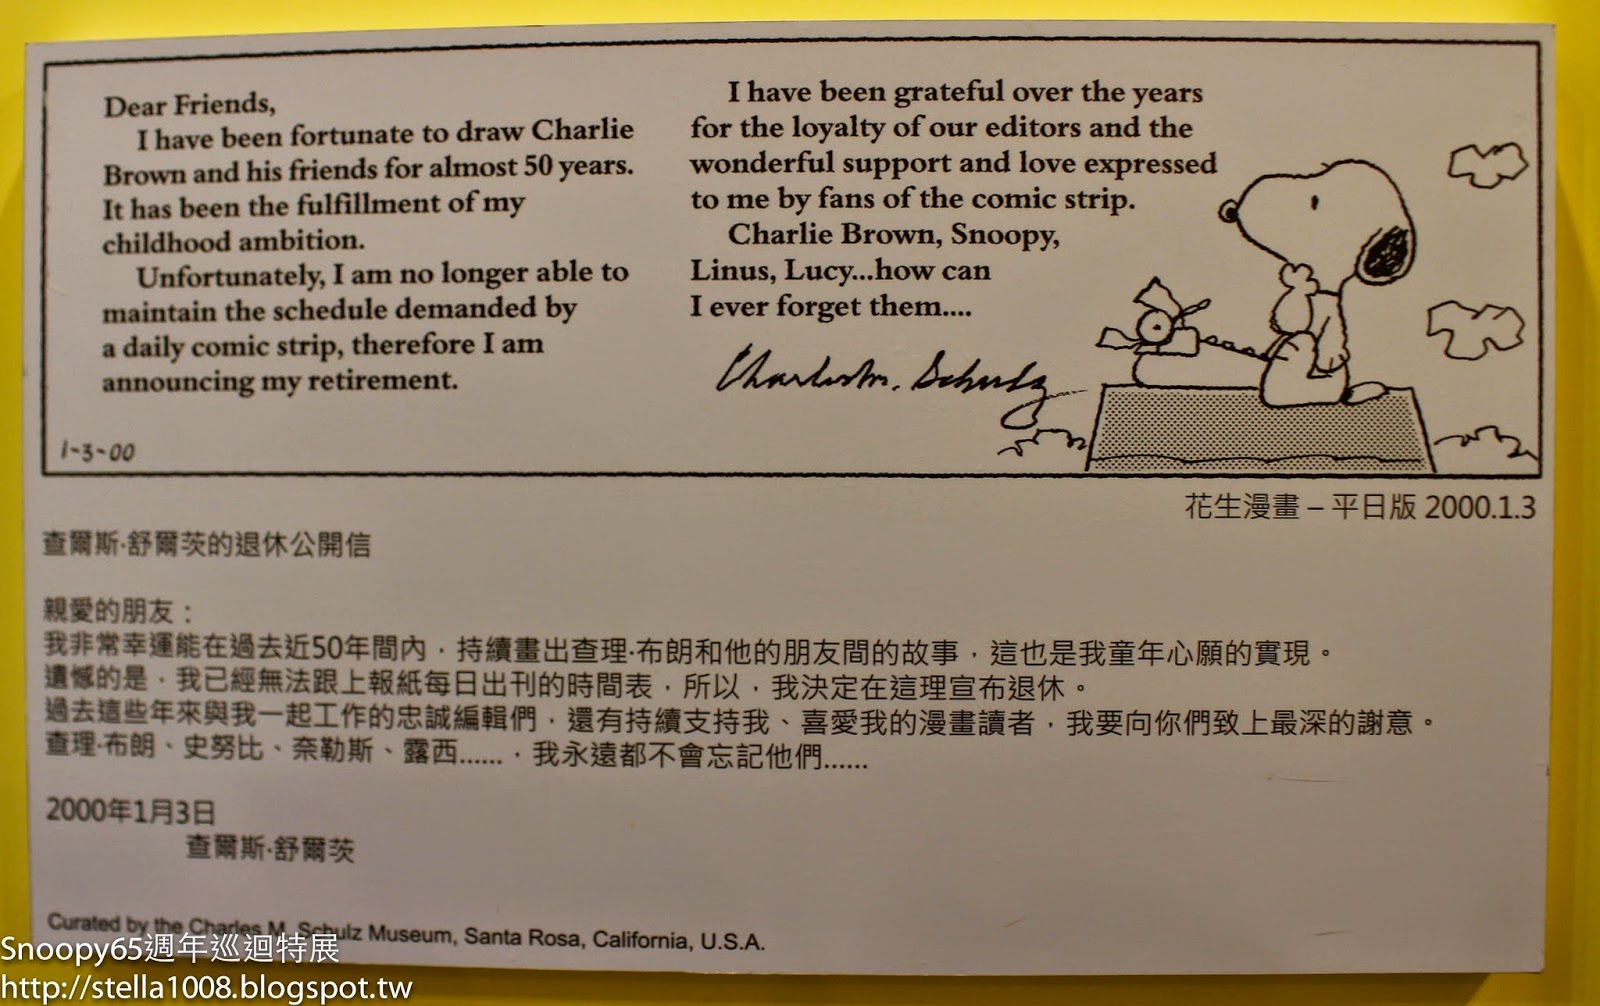 Dear Friends,
I have been fortunate to draw Charlie
Brown and his friends for almost 50 years.
It has been the fulfillment of my
childhood ambition.
Unfortunately, I am no longer able to
maintain the schedule demanded by
a daily comic strip, therefore I am
announcing my retirement.
1-3-00
I have been grateful over the years
for the loyalty of our editors and the
wonderful support and love expressed
to me by fans of the comic strip.
Charlie Brown, Snoopy,
Linus, Lucy...how can
I ever forget them....
Charles M. Schulz
花生漫畫 – 平日版 2000.1.3
查爾斯·舒爾茨的退休公開信
親愛的朋友：
我非常幸運能在過去近50年間內，持續畫出查理·布朗和他的朋友間的故事，這也是我童年心願的實現。
遺憾的是，我已經無法跟上報紙每日出刊的時間表，所以，我決定在這理宣布退休。
過去這些年來與我一起工作的忠誠編輯們，還有持續支持我、喜愛我的漫畫讀者，我要向你們致上最深的謝意。
查理·布朗、史努比、奈勒斯、露西......，我永遠都不會忘記他們......
2000年1月3日
查爾斯·舒爾茨
Curated by the Charles M. Schulz Museum, Santa Rosa, California, U.S.A.
Snoopy65週年巡迴特展
http://stella1008.blogspot.tw